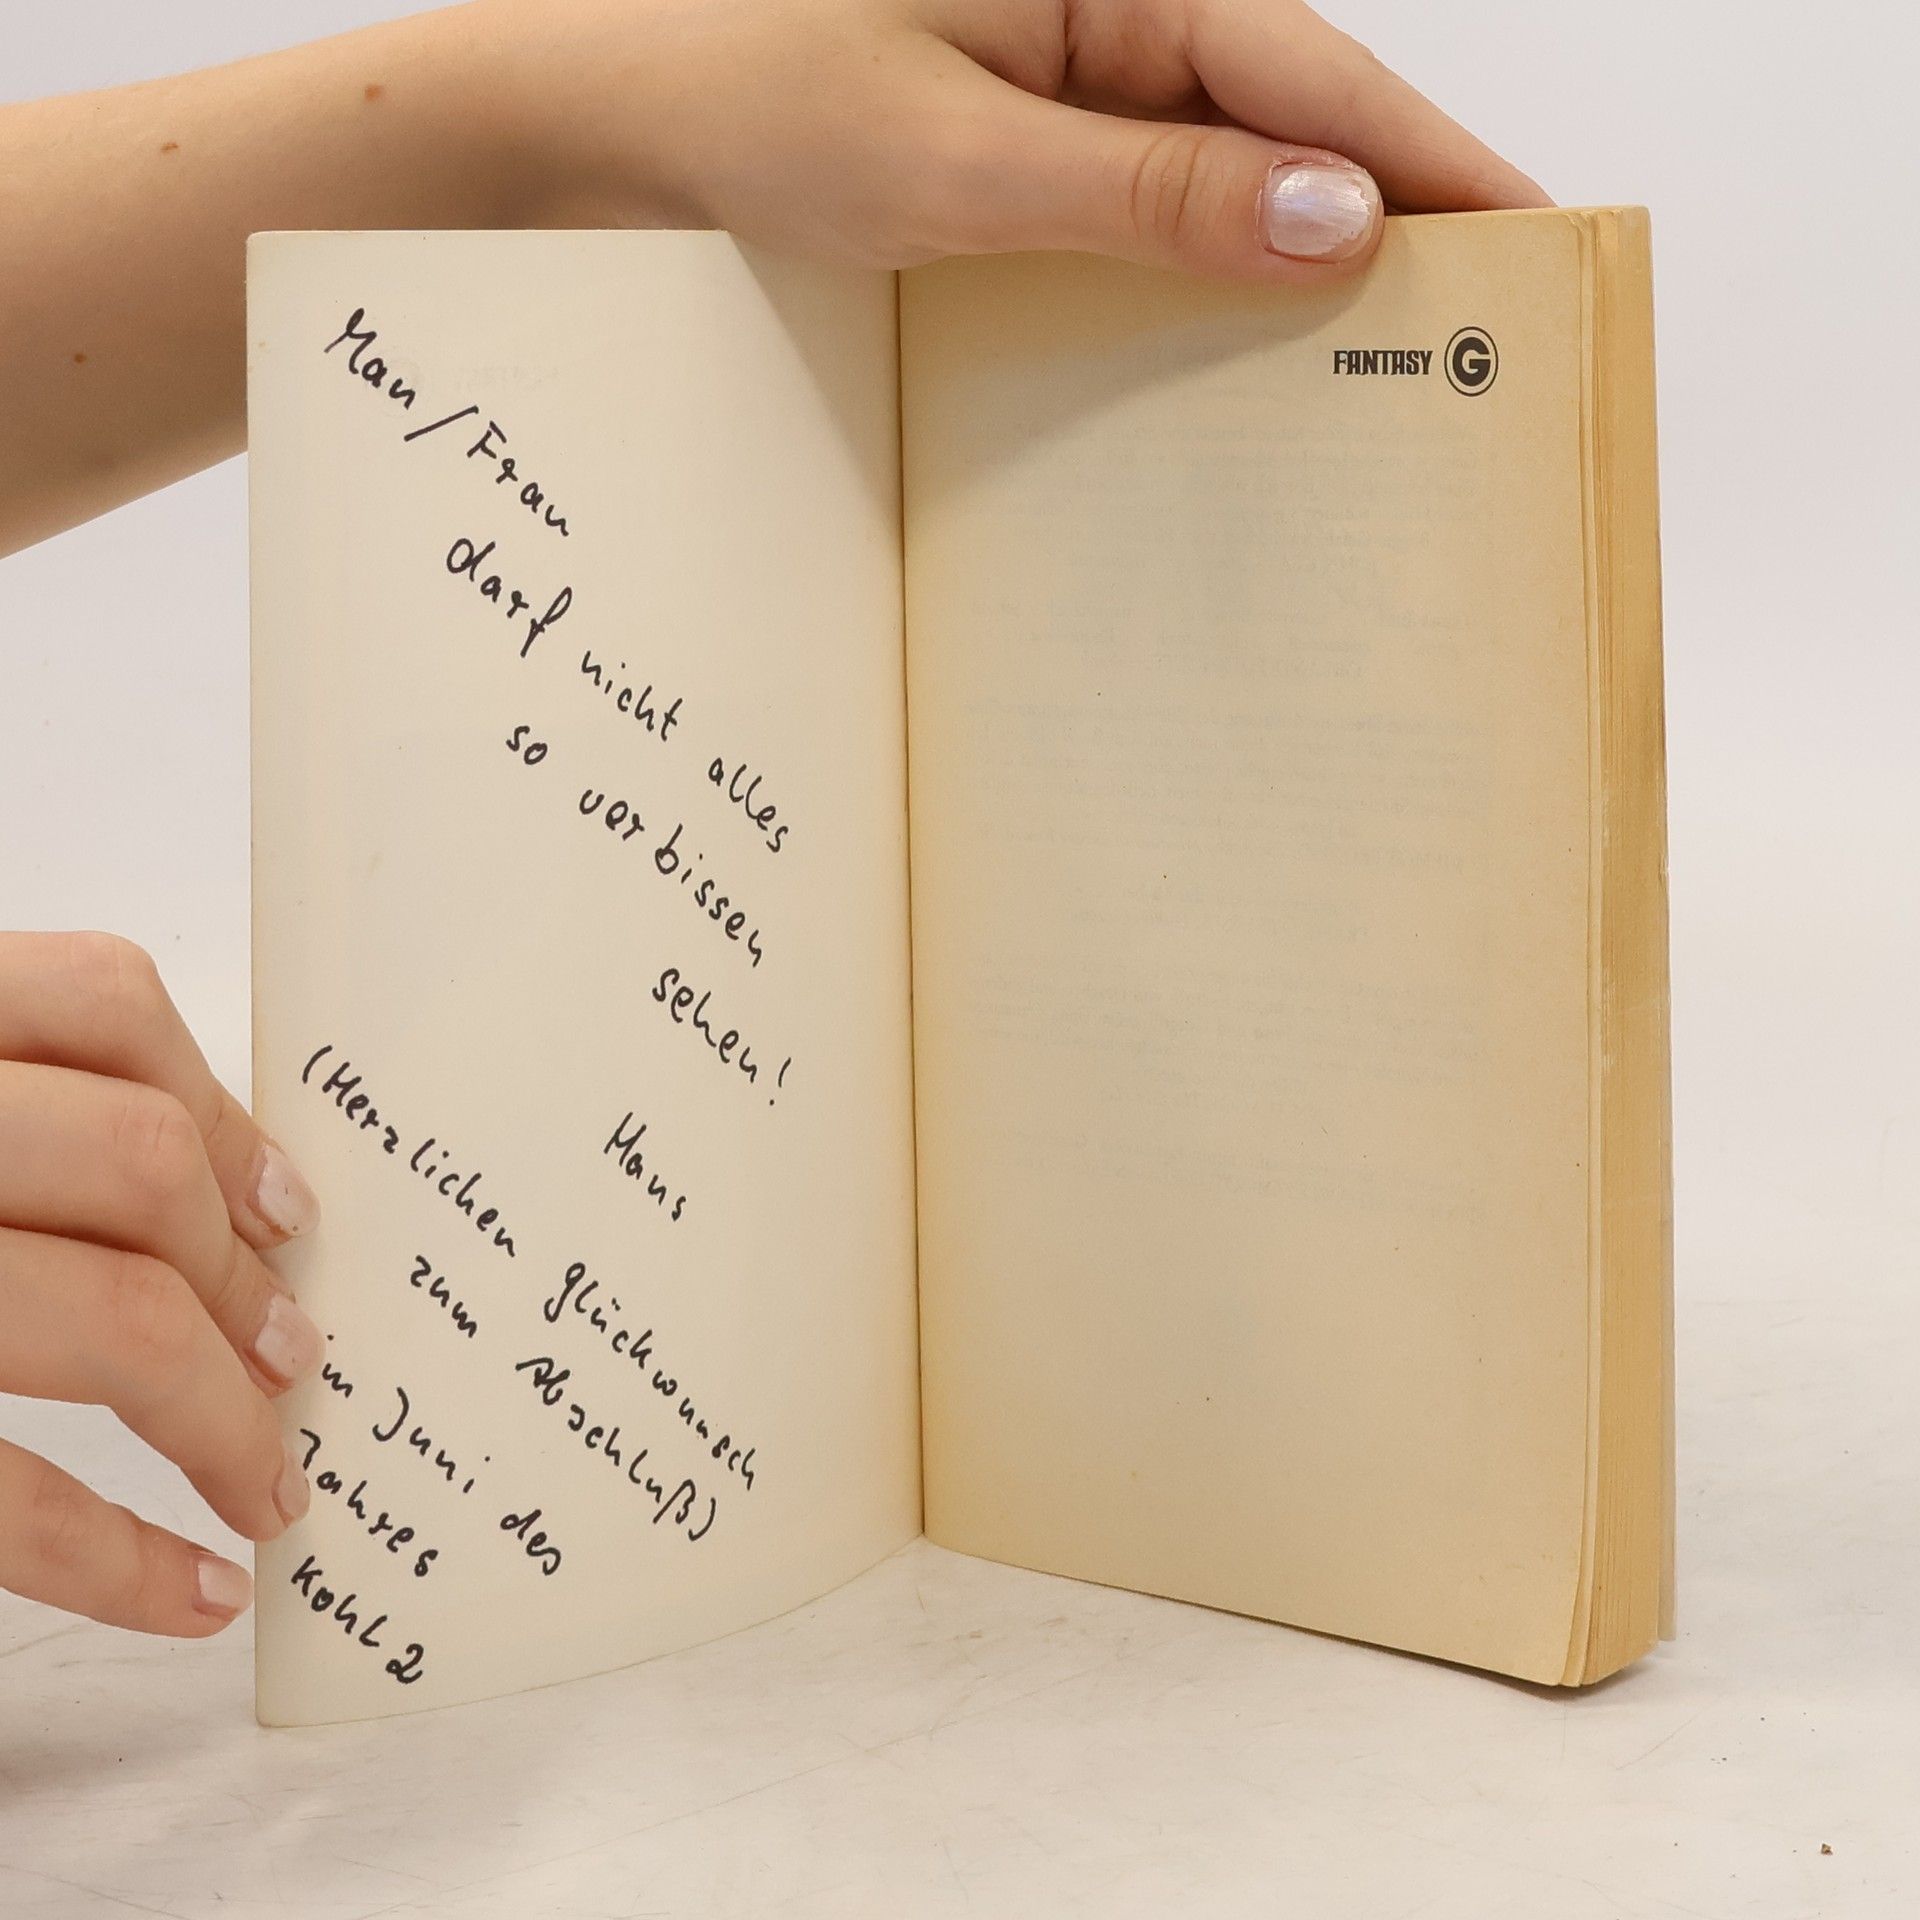 Man/Frau
darf nicht alles
so verbissen
sehen!
Hans
(Herzlichen Glückwunsch
zum Abschluß)
im Juni des
Jahres
Kohl 2
FANTASY G